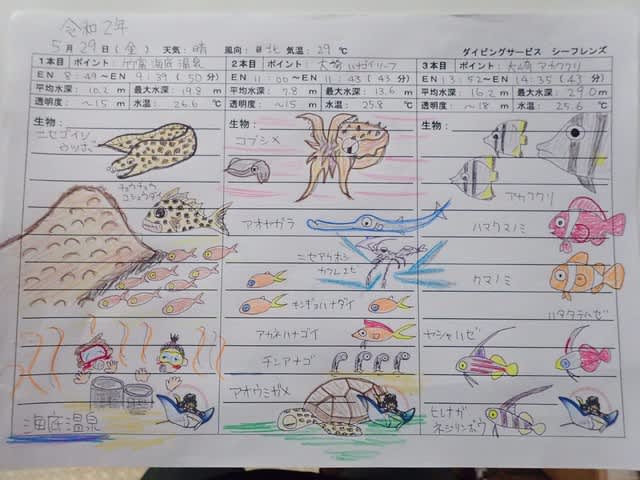 令和2年
5月29日(金) 天気:晴 風向:北 気温:29℃ ダイビングサービス シーフレンズ
1本目 ポイント:竹富海底温泉
EN 8:49～EN 9:39 (50分)
平均水深:10.2m 最大水深:19.8m
透明度:～15m 水温:26.6℃
生物:
ニセゴイシ
ウツボ
チョウチョウ
コショウダイ
海底温泉
2本目 ポイント:大崎ハナゴイリーフ
EN 11:00～EN 11:43 (43分)
平均水深:7.8m 最大水深:13.6m
透明度:～15m 水温:25.8℃
生物:
コブシメ
アオヤガラ
ニセアカホシ
カクレエビ
キンギョハナダイ
アカネハナゴイ
チンアナゴ
アオウミガメ
3本目 ポイント:大崎アカククリ
EN 13:52～EN 14:35 (43分)
平均水深:16.2m 最大水深:29.0m
透明度:～18m 水温:25.6℃
生物:
アカククリ
ハマクマノミ
クマノミ
ハタタテハゼ
ヤシャハゼ
ヒレナガ
ネジリンボウ